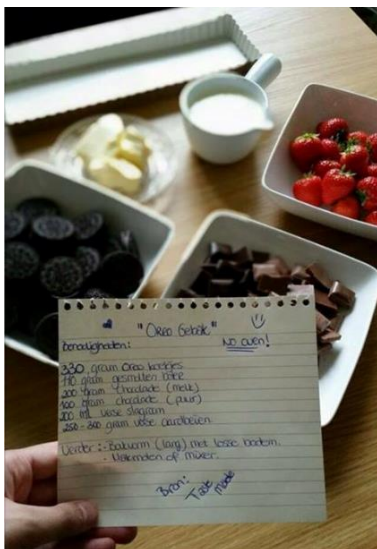 "Oreo Gebak"
Benodigdheden:
No oven!
330 gram Oreo koekjes
110 gram gesmolten boter
200 gram chocolade (melk)
100 gram chocolade (puur)
200 ml verse slagroom
250-300 gram verse aardbeien
Verder: - Bakvorm (lang) met losse bodem.
- of mixer.
Bron:
Taste
Made